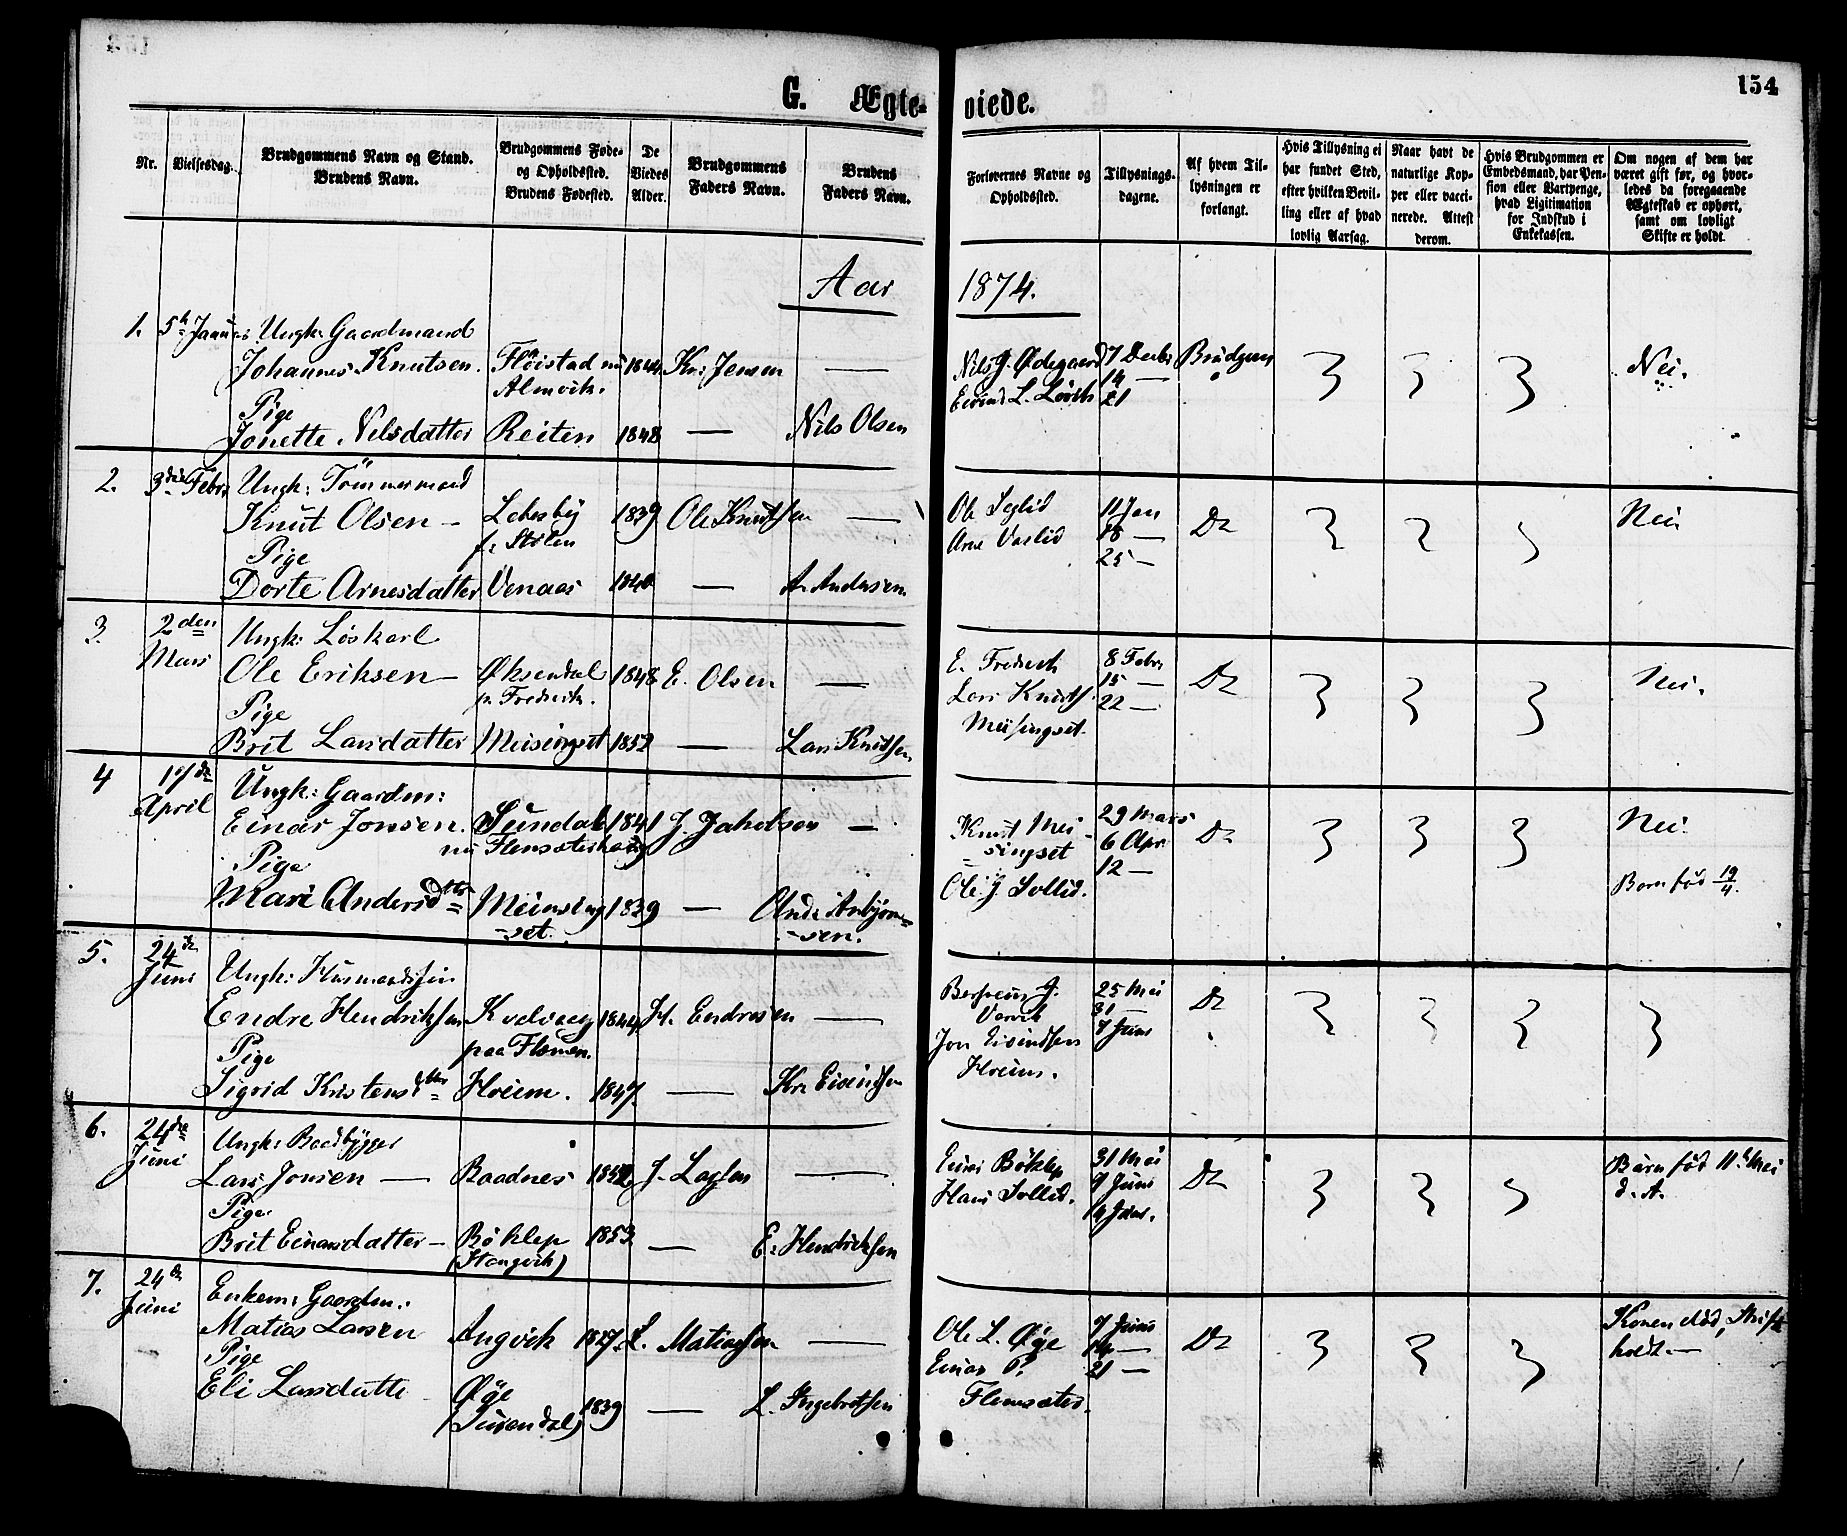 154
G. Ægteviede.
Nr.
Vielsesdag.
Brudgommens Navn og Stand.
Brudens Navn.
Brudgommens Føde-
og Opholdssted.
Brudens Fødested.
De
Viedes
Alder.
Brudgommens
Faders Navn.
Brudens
Faders Navn.
Forlovernes Navne og
Opholdssted.
Tillysnings-
dagene.
Af hvem Til-
lysningen er
forlangt.
Hvis Tillysning ei
har fundet Sted,
efter hvilken Bevil-
ling eller af hvad
lovlig Aarsag.
Naar havt de
naturlige Kop-
per eller vacci-
nerede. Attest
derom.
Hvis Brudgommen er
Embedsmand, har Pen-
sion eller Vartpenge,
hvad Legitimation
for Indskud i
Enkekassen.
Om nogen af dem har
været gift før, og hvor-
ledes da foregaaende
Ægteskab er ophørt,
samt om lovligt
Skifte er holdt.
Aar 1874.
1. 5te Januar Ungk: Gaardmand
Johannes Knutsen. Fløistad nu 1844 Kn: Jensen —
Almvik.
Pige
Jonette Nilsdatter Reiten 1848 — Nils Olsen
Nils J. Ødegaard 7 Decbr Brudgom
14 —
Eivind L. 21
Nei.
2. 3die Febr Ungk: Tömmermand
Knut Olsen — 1839 Ole Knutsen —
Pige
Dorte Arnesdatter Venaas 1840 — A. Andersen
Ole Seglid 11 Jan Do
Arne Vaslid 18 —
25 —
Nei
3. 2den Mars Ungk: Løskarl
Ole Eriksen — Øksendal 1848 E. Olsen —
p. Frederik.
Pige
Brit Larsdatter Meisingset 1852 — Lars Knutsen
E. Frederik 8 Febr Do
Lars Knuts. 15 —
Meisingset. 22 —
Nei.
4 17de April Ungk: Gaardm:
Einar Jonsen. Sundal 1841 J. Jakobsen —
nu Flemsæterhaug
Pige
Mari Andersdttr Meisingset. 1839 — Anders Anbjørnsen.
Knut Meisingset 29 Mars Do
6 Apr
Ole J. Sollid. 12 —
Nei.
Barn fød 19/4.
5. 24de Juni Ungk: Husmandssøn
Endre Hendriksen Kvalvaag 1844 H. Endresen —
paa Flemmen.
Pige
Sigrid Kristensdtter Hoeim. 1847. — Kr. Eivindsen
25 Mei Do
31 —
Jon Eivindsen 7 Juni
Hoeim.
6. 24de Juni Ungk: Baadbygger
Lars Jonsen — Baadnes 1852 J. Larsen —
Pige
Brit Einarsdatter — Bøklep 1853 — E. Hendriksen
(Stangvik)
Einar Bøklep 31 Mei Do
Hans Sollid. 7 Juni
14 Juni.
Barn fød 11te Mei
d. A.
7. 24de Juni Enkem: Gaardm.
Matias Larsen Angvik 1827 L. Matiassen —
Pige
Eli Larsdatter Øie 1839 — L. Ingebretsen
(Surendal)
Ole L. Øye 7 Juni Do
Einar P. 14 —
Flemsæter. 21 —
Konen død, Skifte
holdt. —